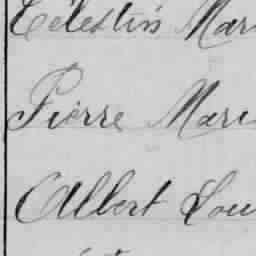 Célestin Mar
Pierre Mari
Albert Lou